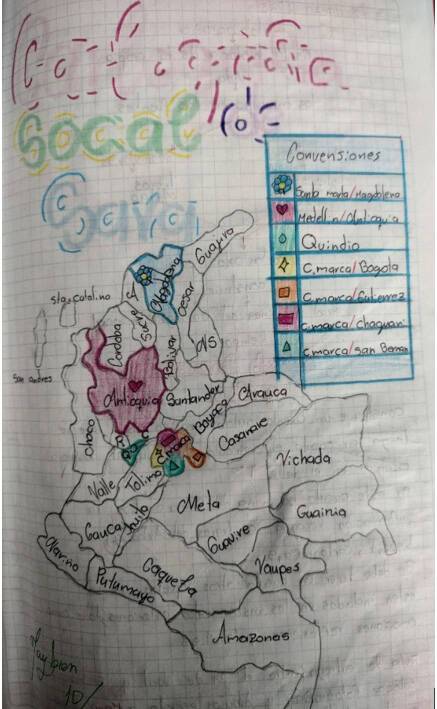 Socal
Convensiones
Santa marta/Magdalena
Medellin/Antioquia
Quindio
C,marca/Bogota
C,marca/Gutierrez
C,marca/chaguani
C,marca/San Bernan
Guajira
Magdalena
Cesar
sta catalina
Sucre
Cordoba
Bolivar
NS
San andres
Antioquia
Santander
Arauca
Boyaca
Choco
Casanare
C/marca
Vichada
Valle
Tolima
Meta
Guainia
Cauca
Huila
Guavire
Narino
Caqueta
Vaupes
Putumayo
Amazonas
10/